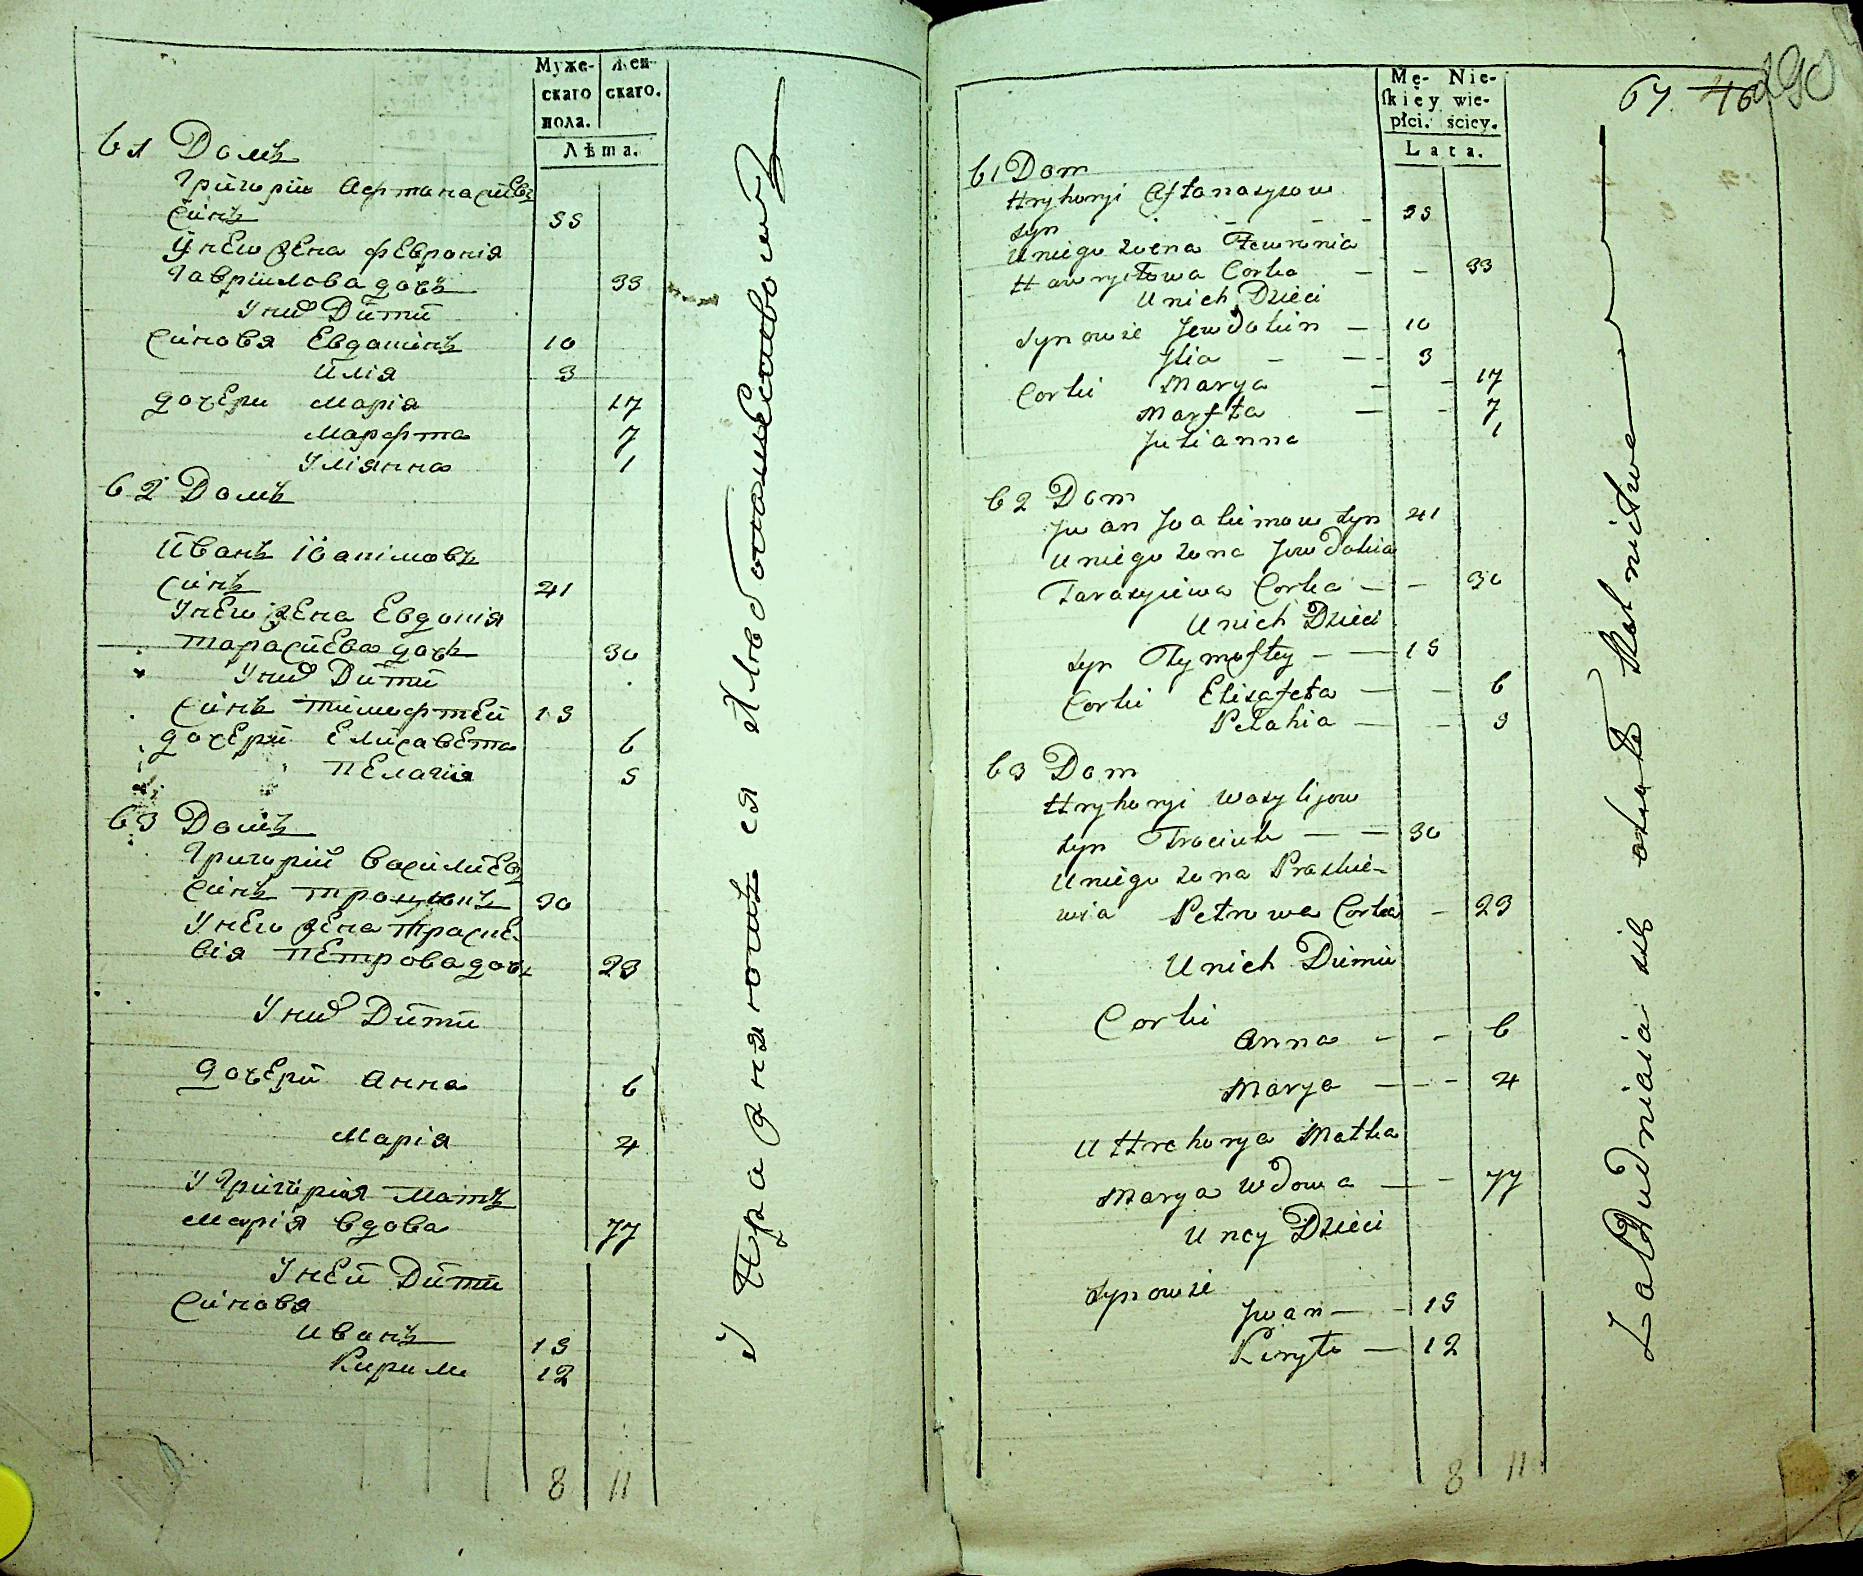 Муже-
скаго
пола.
Жен-
скаго.
Лѣта.
61 Домъ
Григорій Афтанасиевъ
Синъ 35
У него жена Феврония
Гаврилова дочъ 33
У них Дѣти
Синовя Евдокимъ 10
Илія 3
дочери Марія 17
Марфта 7
Уліянна 1
62 Домъ
Иванъ Іоакимовъ
Синъ 41
У него жена Евдокия
Тарасиева дочъ 30
У них Дити
Синъ Тимофтей 15
дочери Елисавета 6
Пелагия 3
63 Домъ
Григорий Василиев
Синъ Троцюкъ 30
У него жена Праске-
вія Петрова дочъ 23
У них Дити
дочери Анна 6
Марія 4
У Григория Мать
Марія вдова 77
У ней Дити
Синовя
Иванъ 15
Кирило 12
8 11
67 46 290
Mę-
skiey
płci.
Nie-
wie-
ściey.
Lata.
61 Dom
Hryhoryi Aftanasyiow
syn 35
U niego żona Fewronia
Hawryłowa Corka 33
U nich Dzieci
Synowie Jewdokim 10
Jlia 3
Corki Marya 17
Marfta 7
Julianna 1
62 Dom
Jwan Joakimow Syn 41
U niego żona Jewdokia
Tarasyiewa Corka 30
U nich Dzieci
Syn Tymoftey 15
Corki Elisafeta 6
Pełahia 3
63 Dom
Hryhoryi Wasylijow
Syn Trociuk 30
U niego żona Praskie-
wia Petrowa Corka 23
U nich
Corki
Anna 6
Marya 4
U Hrehorya Matka
Marya Wdowa 77
U ney Dzieci
Synowie
Jwan 15
Kiryło 12
8 11